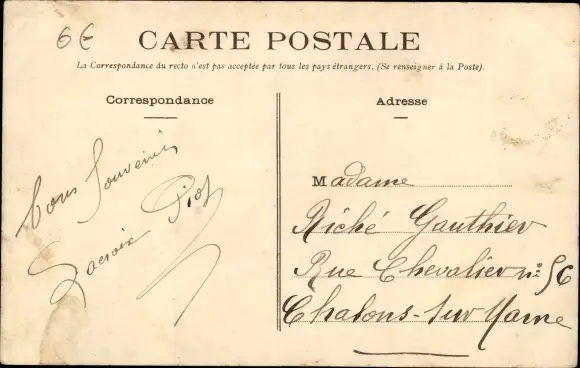 6€
CARTE POSTALE
La Correspondance du recto n'est pas acceptée par tous les pays étrangers. (Se renseigner à la Poste).
Correspondance
Adresse
Bons Souvenirs
Lacroix Piot
Madame
Riché Gauthier
Rue Chevalier no: 56
Chalons-sur Marne